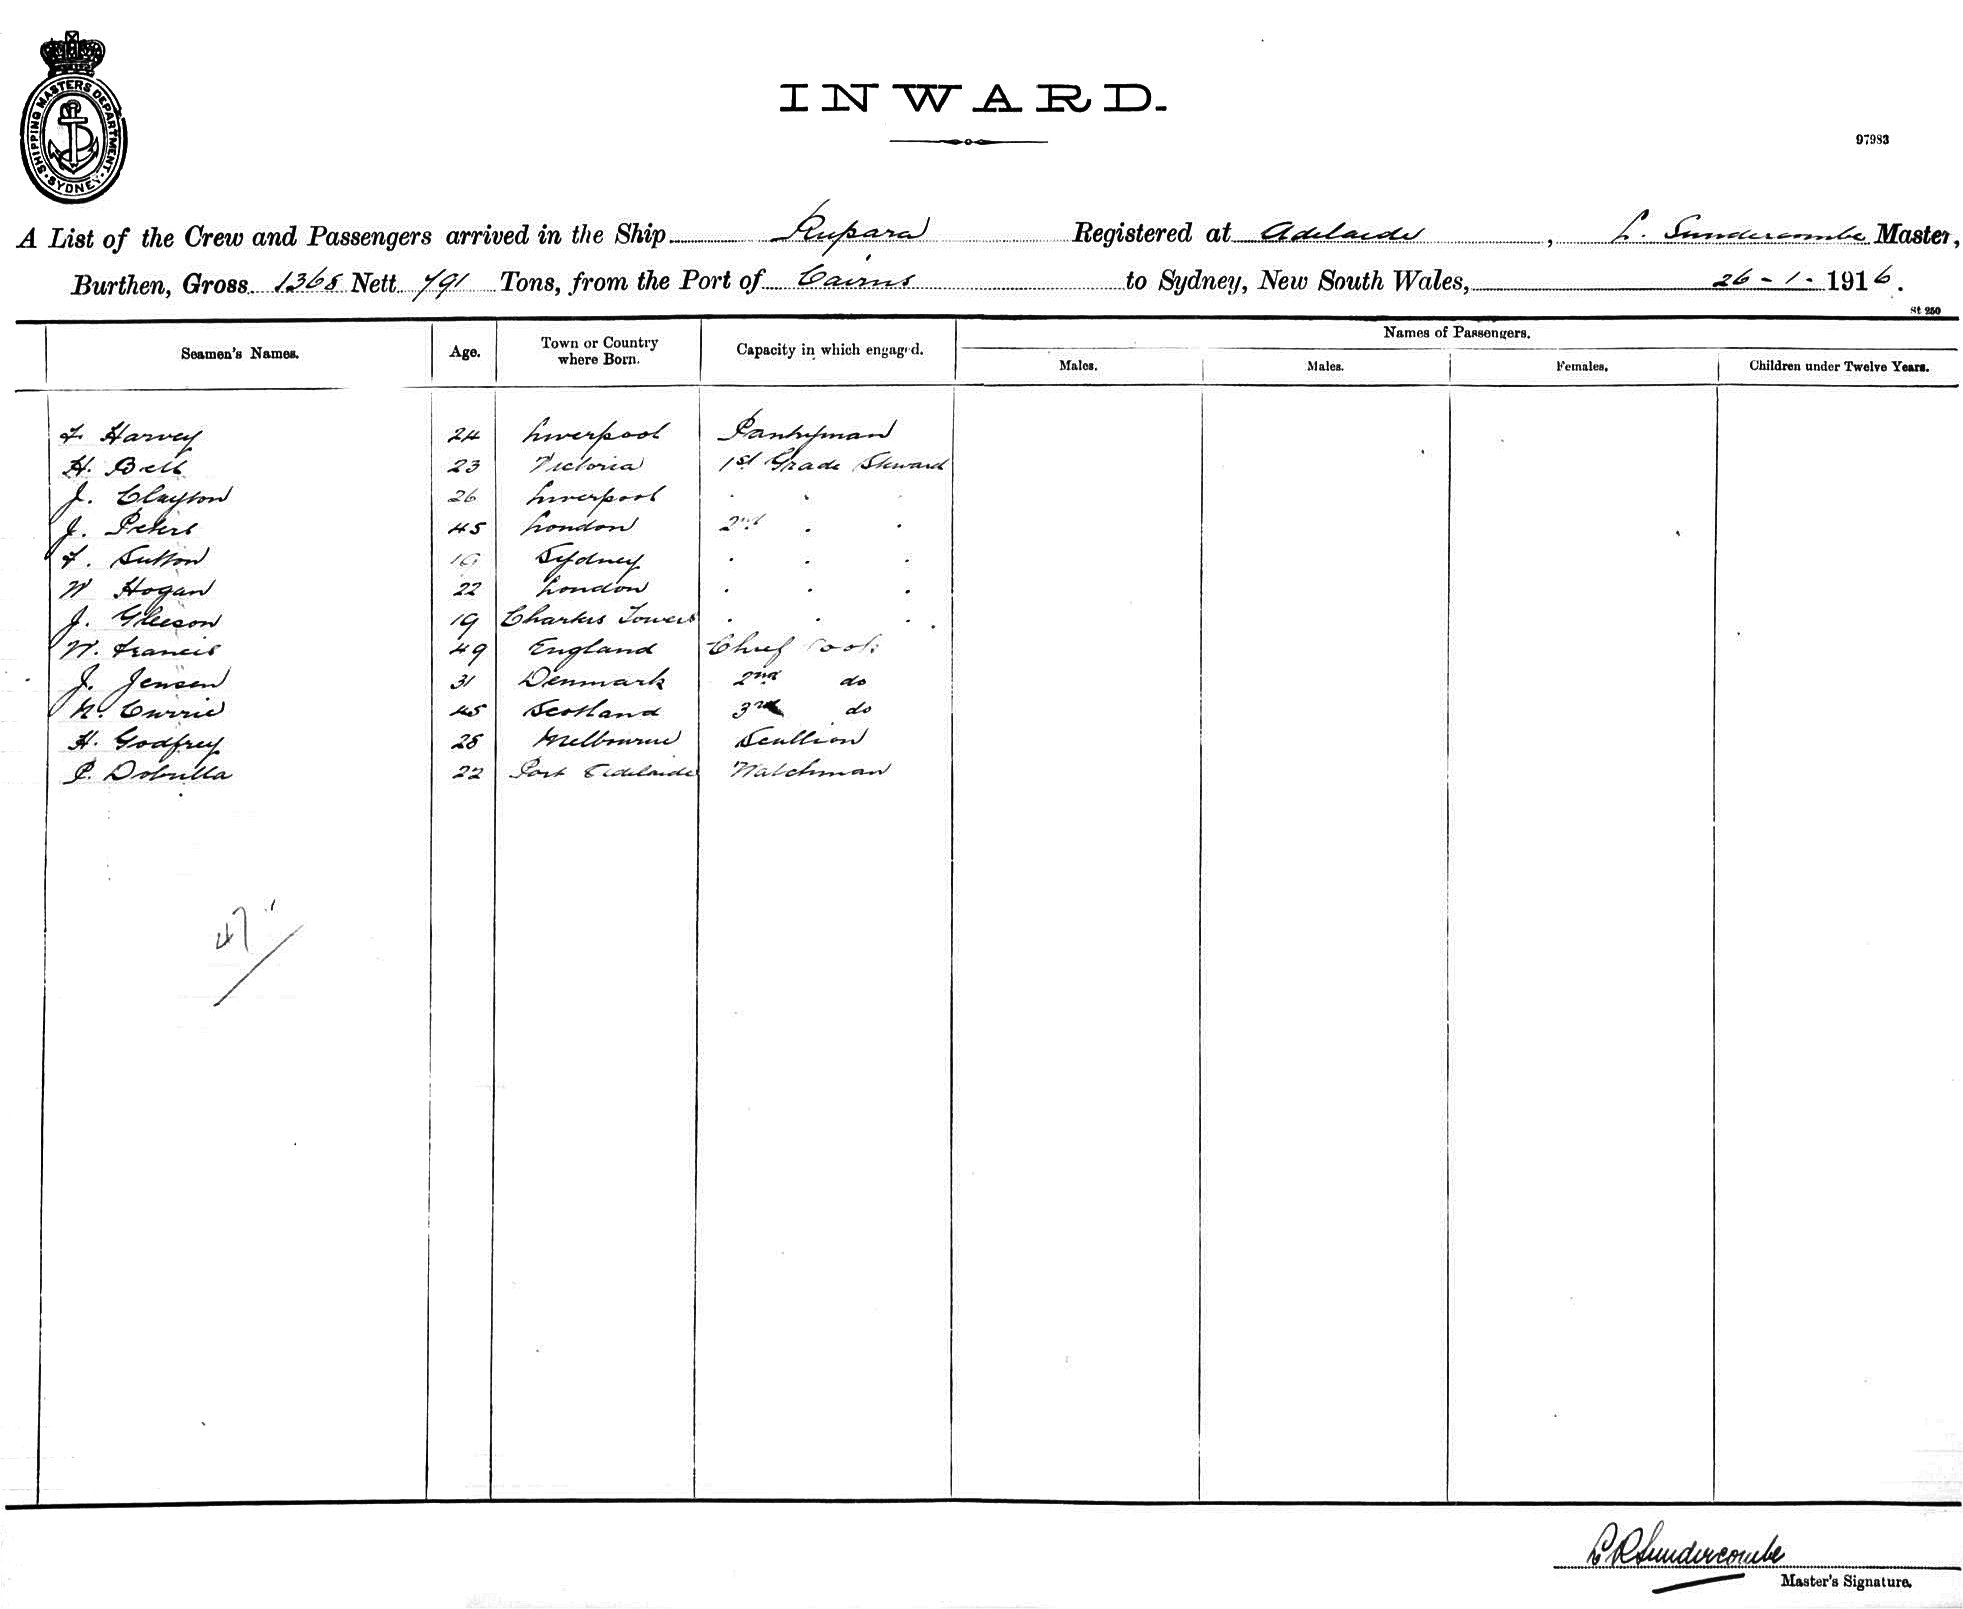 SHIPPING MASTERS DEPARTMENT
SYDNEY
INWARD.
97983
A List of the Crew and Passengers arrived in the Ship Rupara Registered at Adelaide, L. Sundercombe Master,
Burthen, Gross 1368 Nett 791 Tons, from the Port of Cairns to Sydney, New South Wales, 26-1-1916.
St 250
Seamen's Names. Age. Town or Country where Born. Capacity in which engaged. Names of Passengers.
Males. Males. Females. Children under Twelve Years.
F. Harvey 24 Liverpool Pantryman
H. Bell 23 Victoria 1st Grade Steward
J. Clayton 26 Liverpool . . .
J. Peters 45 London 2nd . .
F. Sutton 19 Sydney . . .
W Hogan 22 London . . .
J. Gleeson 19 Charters Towers . . .
W. Francis 49 England Chief Cook
J. Jensen 31 Denmark 2nd do
N. Currie 45 Scotland 3rd do
H. Godfrey 28 Melbourne Scullion
P. Dobrilla 22 Port Adelaide Watchman
47
L R Sundercombe
Master's Signature.